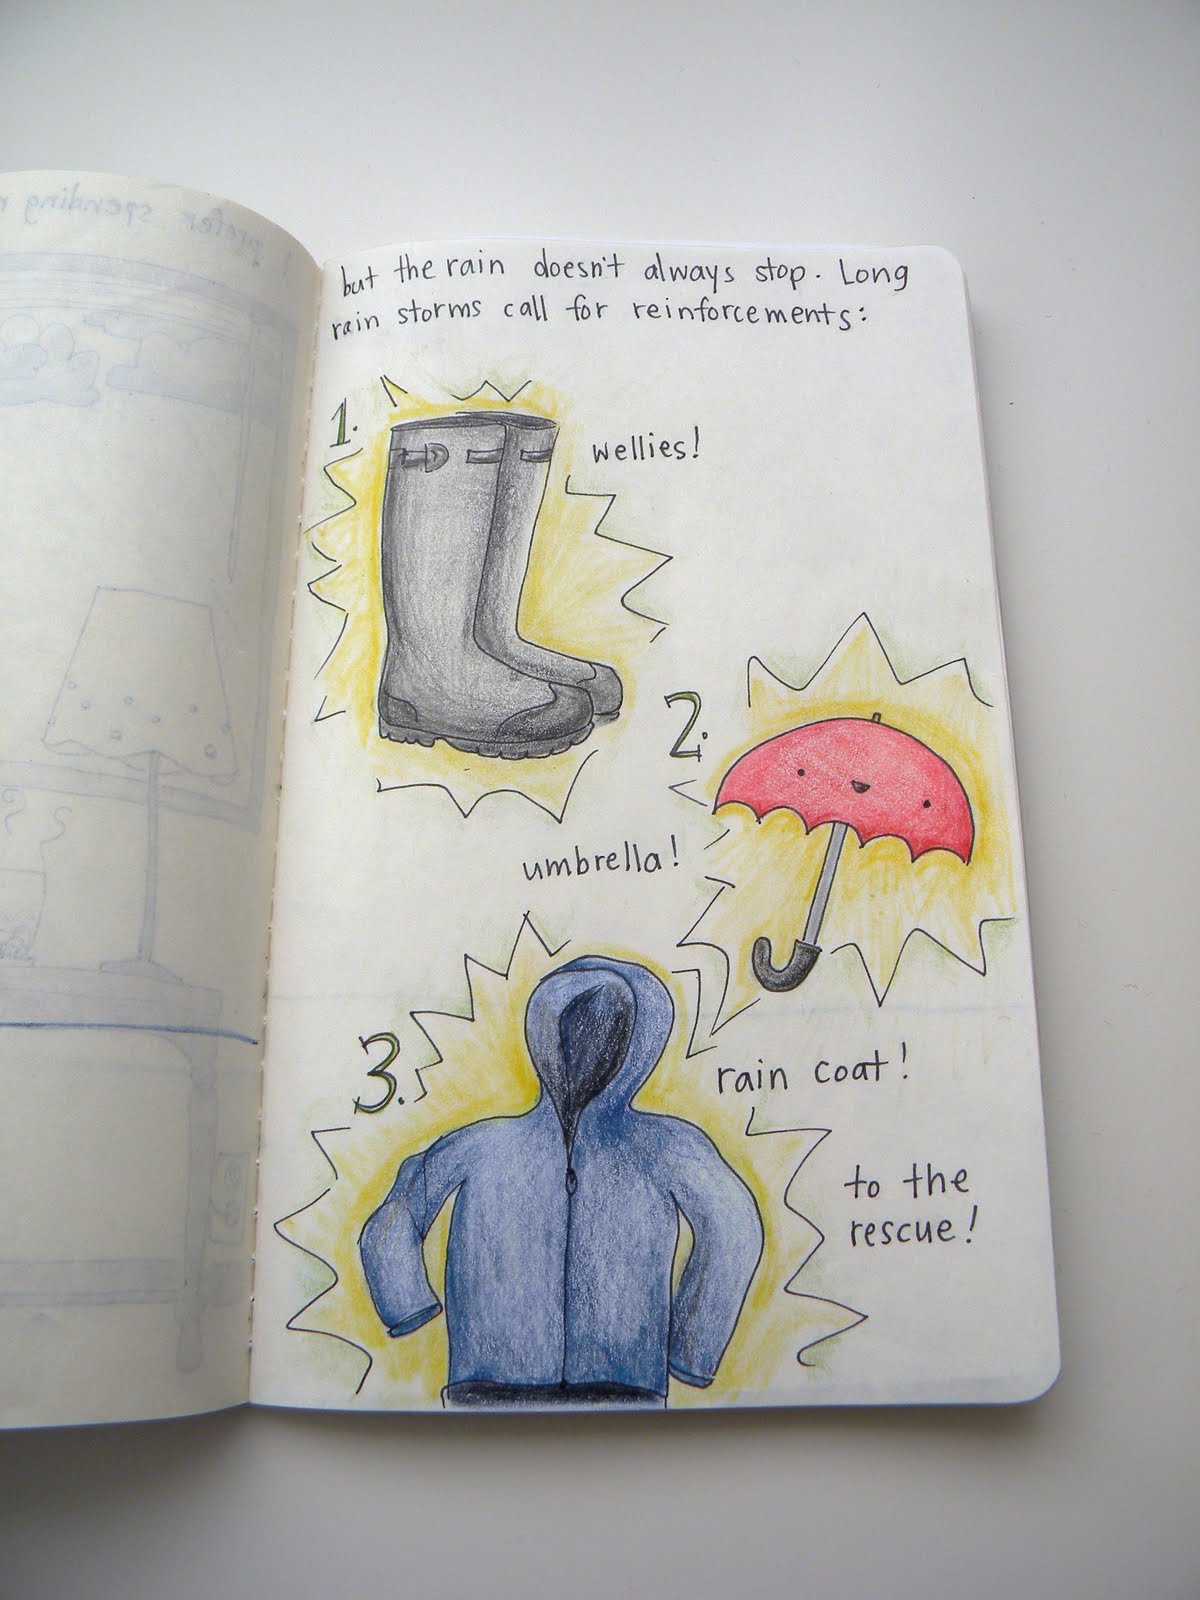 I prefer spending
but the rain doesn't always stop. Long
rain storms call for reinforcements:
1.
wellies!
2.
umbrella!
3.
rain coat!
to the
rescue!